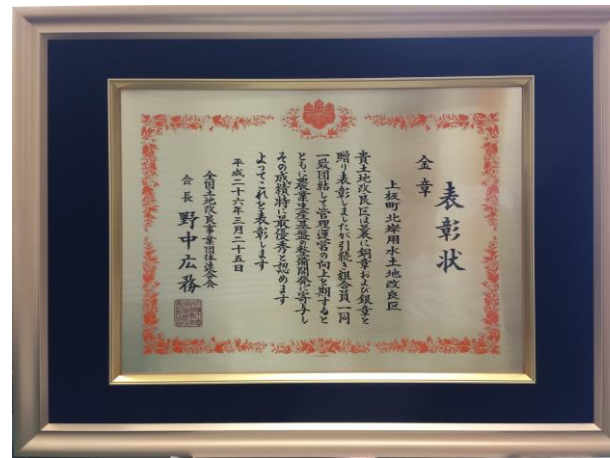 表彰状
金章
上板町北岸用水土地改良区
貴土地改良区は曩に銅章および銀章を
贈り表彰しましたが引続き組合員一同
一致団結して管理運営の向上を期すると
ともに農業生産基盤の整備開発に寄与し
その成績特に最優秀と認めます
よってこれを表彰します
平成二十六年三月二十五日
全国土地改良事業団体連合会
会長 野中広務